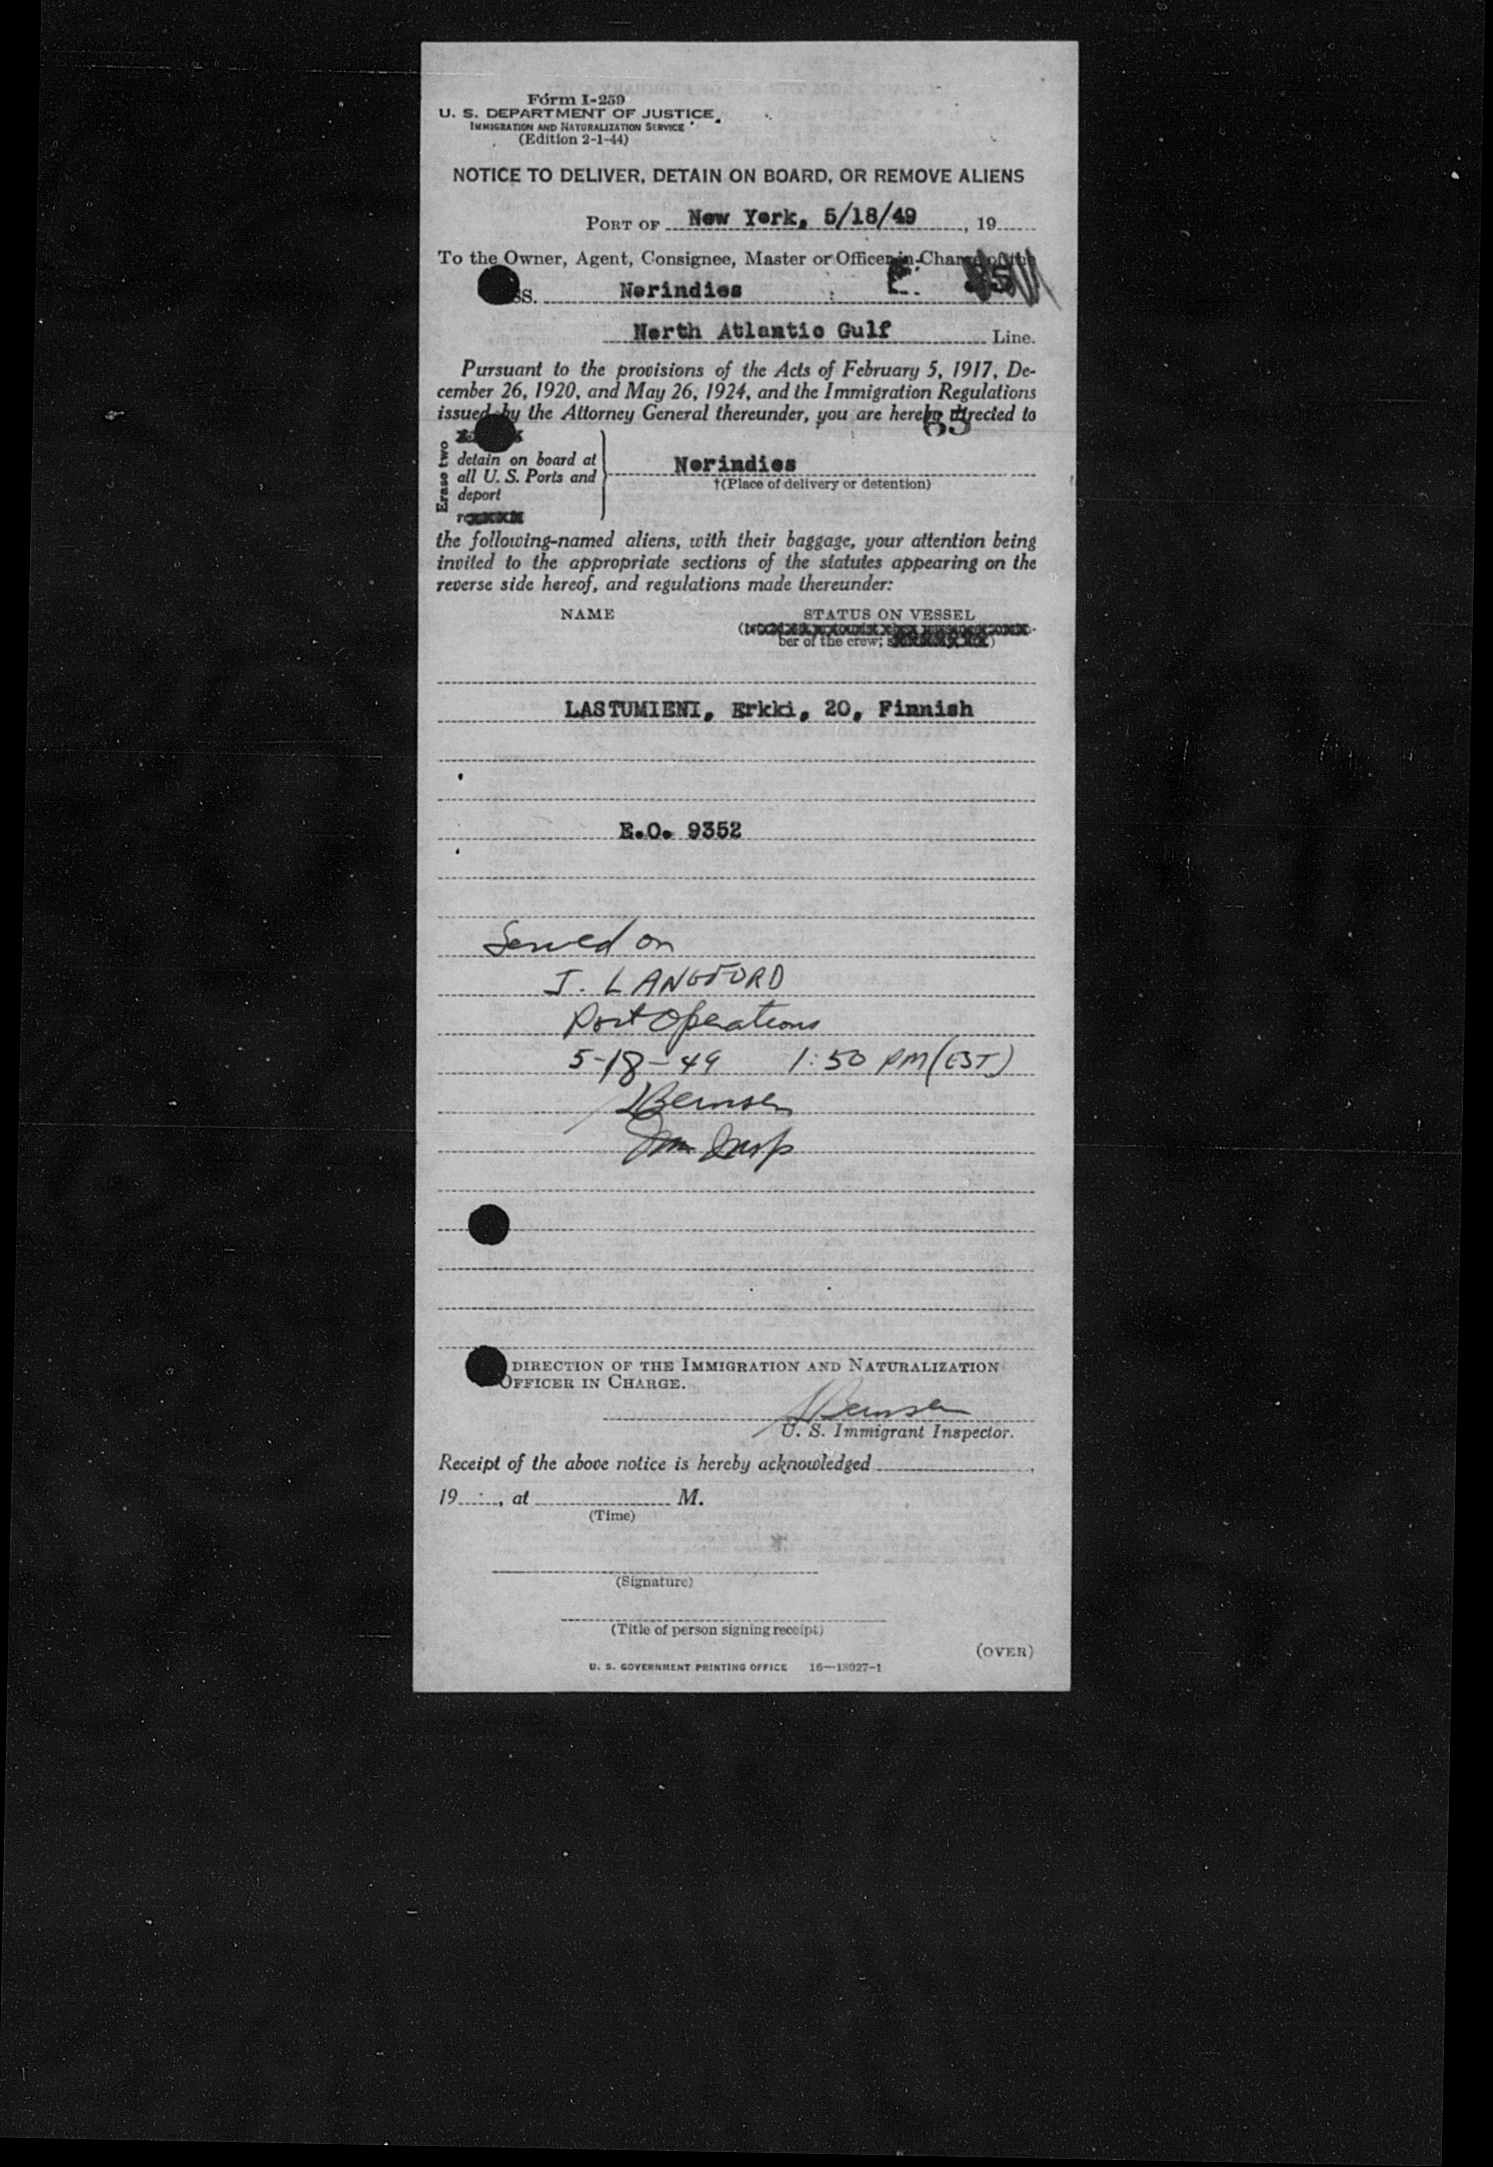 Form I-259
U. S. DEPARTMENT OF JUSTICE
IMMIGRATION AND NATURALIZATION SERVICE
(Edition 2-1-44)
NOTICE TO DELIVER, DETAIN ON BOARD, OR REMOVE ALIENS
PORT OF New York, 5/18/49, 19
To the Owner, Agent, Consignee, Master or Officer in Charge of the
SS. Norindies E.
North Atlantic Gulf Line.
Pursuant to the provisions of the Acts of February 5, 1917, De-
cember 26, 1920, and May 26, 1924, and the Immigration Regulations
issued by the Attorney General thereunder, you are hereby directed to
65
Erase two
detain on board at
all U. S. Ports and
deport
Norindies
†(Place of delivery or detention)
the following-named aliens, with their baggage, your attention being
invited to the appropriate sections of the statutes appearing on the
reverse side hereof, and regulations made thereunder:
NAME STATUS ON VESSEL
ber of the crew;
LASTUMIENI, Erkki, 20, Finnish
E.O. 9352
Served on
J. LANGFORD
Port Operations
5-18-49 1:50 PM (EST)
Bernsen
Imm Insp
DIRECTION OF THE IMMIGRATION AND NATURALIZATION
OFFICER IN CHARGE.
Bernsen
U. S. Immigrant Inspector.
Receipt of the above notice is hereby acknowledged ,
19 , at M.
(Time)
(Signature)
(Title of person signing receipt)
(OVER)
U. S. GOVERNMENT PRINTING OFFICE 16—18027-1